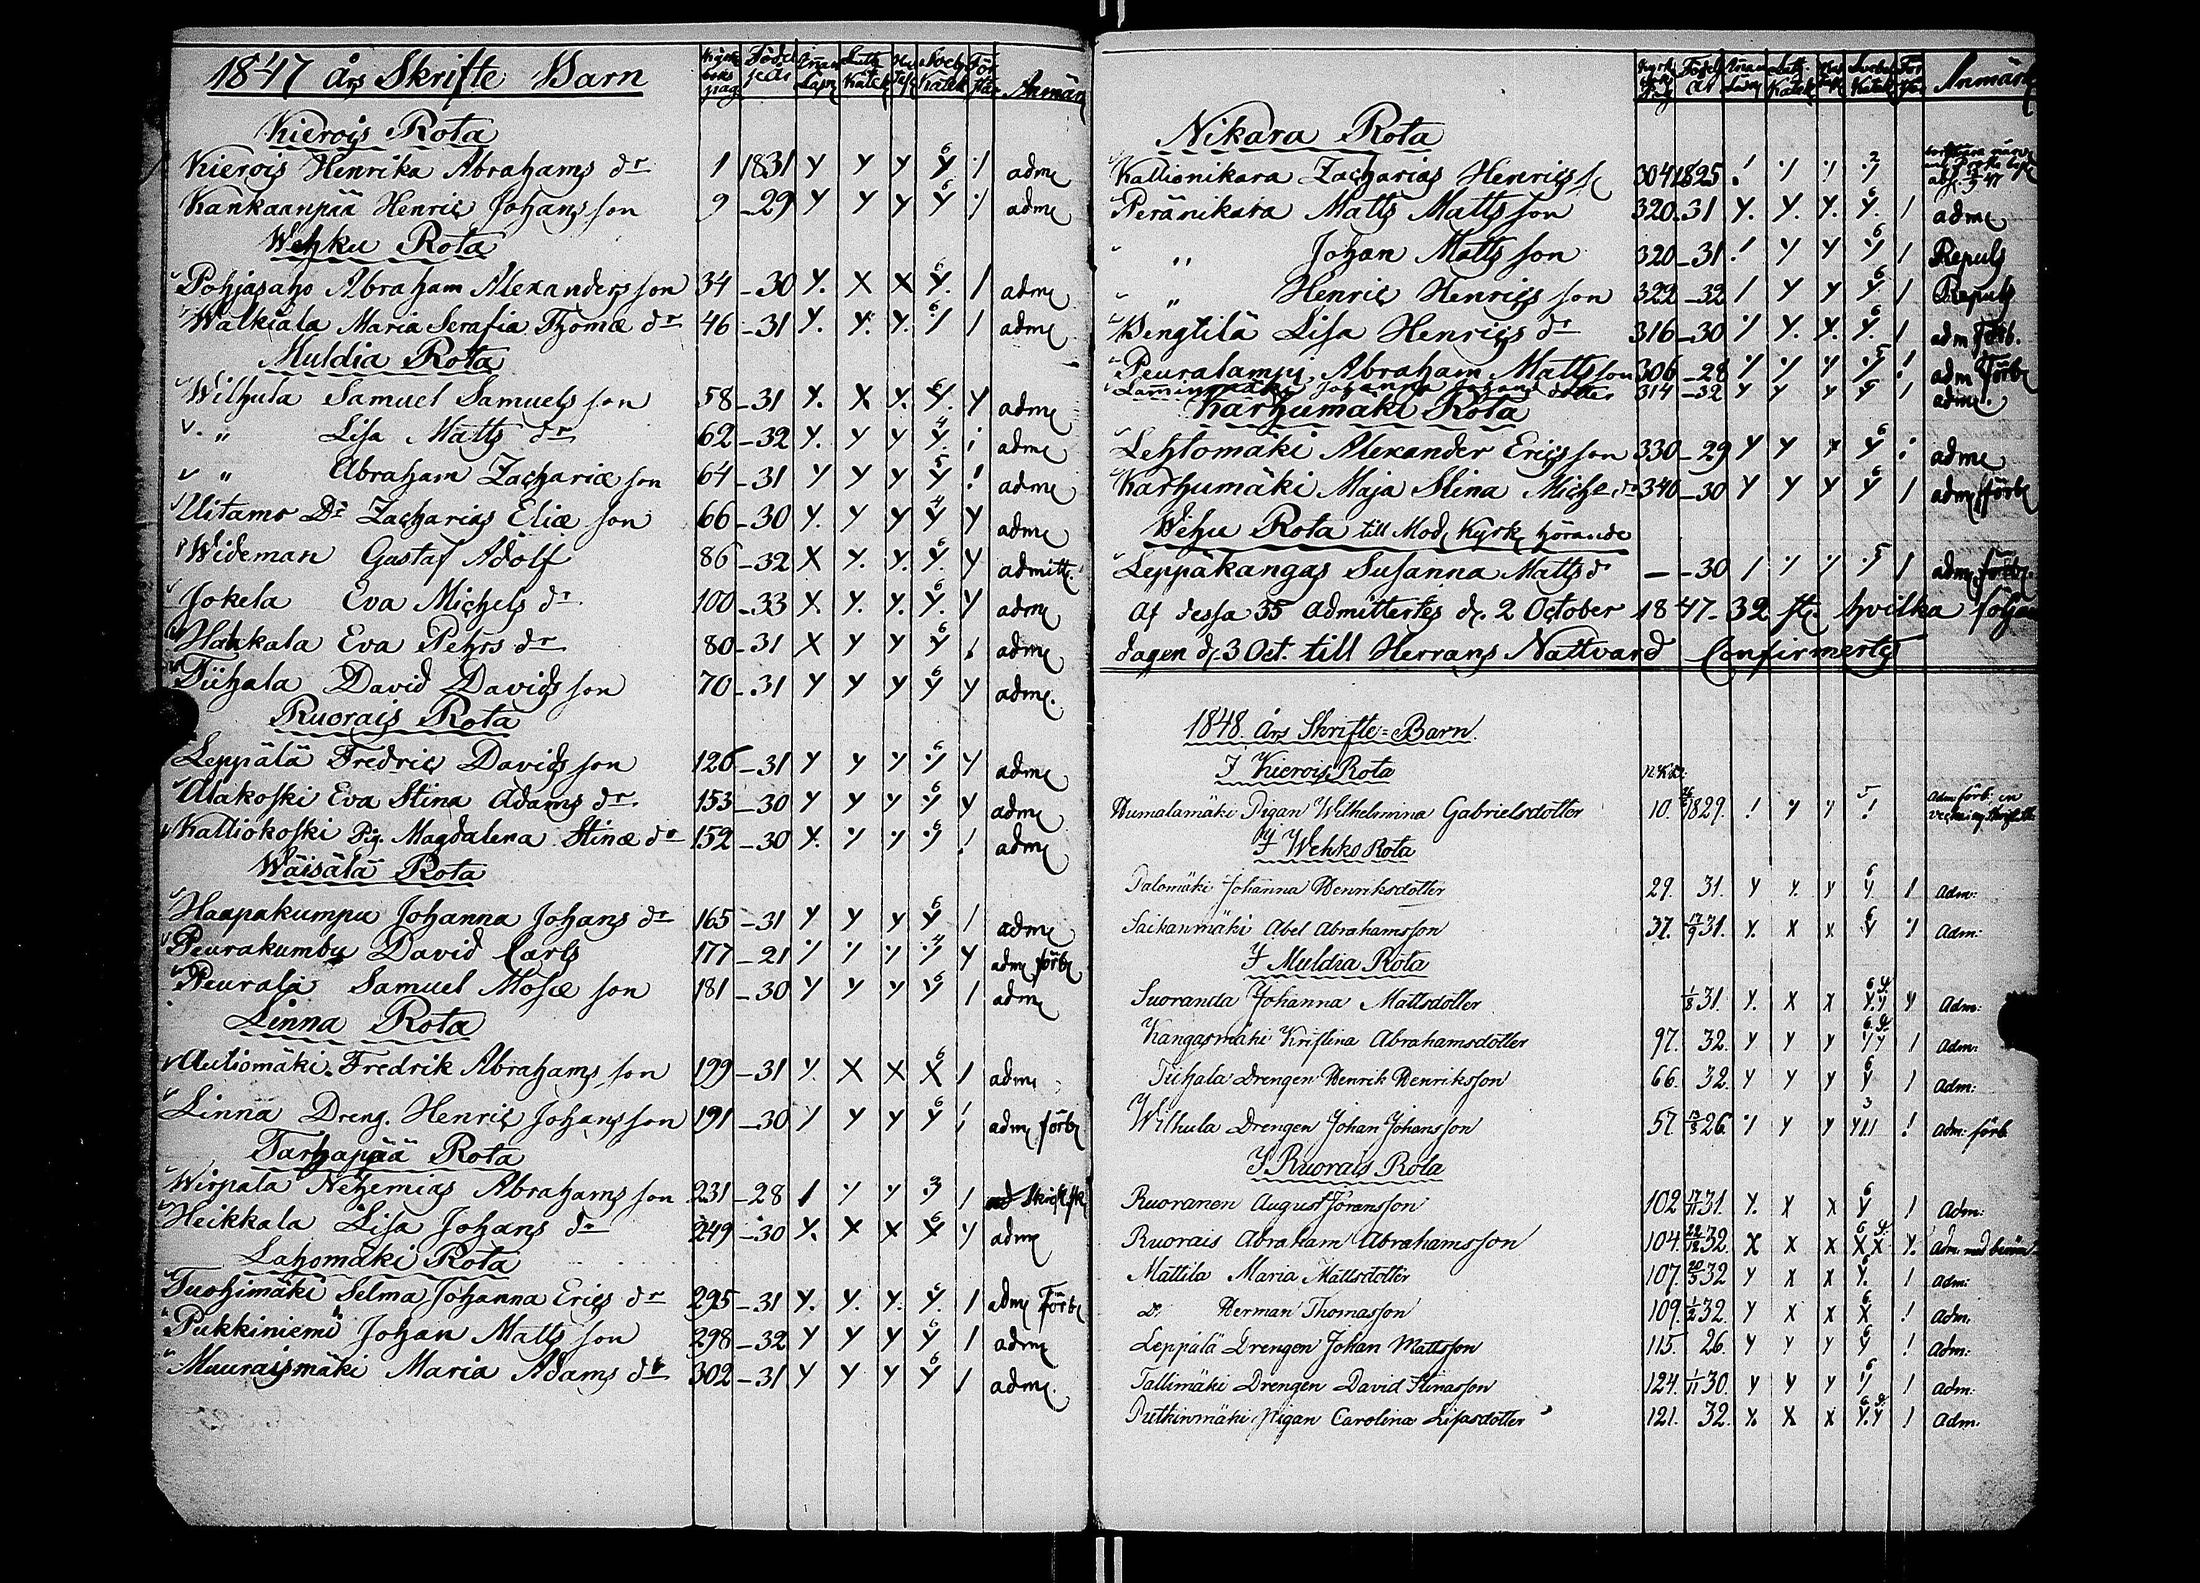 1847 års Skrifte Barn
Anmärk
Kierois Rota
Kierois Henrika Abrahams dr 1 1831 y y y 6 y ·/ adm
Kankaanpää Henric Johansson 9 -29 y y y 6 y ·/ adm
Wehku Rota
Pohjasaho Abraham Alexandersson 34 -30 y. x x 6 y. / adm
Walkiala Maria Serafia Thomæ dr 46 -31 y. y. y. 6 ·/ / adm
Muldia Rota
Wilhula Samuel Samuelsson 58 -31 y. x y. 6 y. y adm
" Lisa Matts dr 62 -32 y. y y 4 y. adm
" Abraham Zachariæ son 64 -31 y y y 5 y ! adm
Uitamo Dr Zacharias Eliæ son 66 -30 y. y y 4 y y adm
Wideman Gustaf Adolf 86 -32 x y. y. 6 y. y admitt.
Jokela Eva Michels dr 100 -33 x. y. y. 6 y. y adm
Hakkala Eva Pehrs dr 80 -31 x y y 6 y adm
Tiihala David Davidsson 70 -31 y y y 6 y y adm.
Ruorais Rota
Leppälä Fredric Davidsson 126 -31 y y y 6 ·/ y adm
Alakoski Eva Stina Adams dr 153 -30 y y y 6 y y adm
Kalliokoski Pig. Magdalena Stinæ dr 152 -30 y. ·/ ·/ 6 ·/ ! adm
Wäisälä Rota
Haapakumpu Johanna Johans dr 165 -31 y y y 6 y / adm
Peurakumbu David Carls 177 -21 ·/ ·/ ·/ 4 ·/ y adm förb
Peurala Samuel Mosæ son 181 -30 y y y 6 y / adm
Linna Rota
Autiomäki Fredrik Abrahamsson 199 -31 y. x x 6 x / adm
Linna Dreng. Henric Johansson 191 -30 / y y 6 y ! adm förb
Tarhapää Rota
Wirpala Nehemias Abrahamsson 231 -28 / ·/ y 3 /
Heikkala Lisa Johans dr 249 -30 y. x x 6 x y adm
Lahomäki Rota
Tuohimäki Selma Johanna Erics dr 295 -31 y. y. y. 6 y. / adm förb
Pukkiniemi Johan Mattsson 298 -32 y y y 6 y / adm
Muuraismäki Maria Adams dr 302 -31 y y y 6 y / adm.
Anmärk
Nikara Rota
Kallionikara Zacharias Henrics 304 1825 ·! ·/ ·/ 2 ·/
Peränikara Matts Mattsson 320 -31 y. y. y. 6 y. / adm
" Johan Mattsson 320 -31 ·! y y 6 y / Repuls
" Henric Henricsson 322 -32 / y y 6 y / Repuls
Bengtilä Lisa Henrics dr 316 -30 ·/ y. y. 6 y. / adm förb.
Peuralampi Abraham Mattsson 306 -28 ·/ ·/ ·/ 5 ·/ ! adm förb
Lamminmäki Johanna Johans dotter 314 -32 y y y y / adm.
Karhumäki Rota
Lehtomäki Alexander Ericsson 330 -29 y y x 6 y adm
Karhumäki Maja Stina Mich. dr 340 -30 y y y 6 y / adm förb
Wehu Rota till Mod. Kyrk. hörande
Leppäkangas Susanna Matts d — -30 / ·/ ·/ 5 ·/ / adm förb.
Af dessa 35 admittertes d. 2 October 1847 - 32 st. hvilka följan
dagen d. 3 Oct. till Herrans Nattvard Confirmertes
1848. års Skrifte=Barn.
I Kierois Rota
Humalamäki Pigan Wilhelmina Gabrielsdotter 10. 1829. ! y y 5 ! Adm förb: en
I Wehko Rota
Palomäki Johanna Henriksdotter 29. 31. y y. y 6 y / Adm:
Saikanmäki Abel Abrahamsson 37. 17/9 31. y. x x 6 y ·/ Adm:
I Muldia Rota
Suoranda Johanna Mattsdotter 1/8 31. y. x x 6 y. y y Adm:
Kangasmäki Kristina Abrahamsdotter 97. 32. y y y 6 y y / Adm:
Tiihala Drengen Henrik Henriksson 66. 32. y y y 6 y / Adm:
Wilhula Drengen Johan Johansson 57. 26. ·/ y y 3 ! Adm: förb.
I Ruorais Rota
Ruoranen August Göransson 102 31. y. x x 6 y ! Adm:
Ruorais Abraham Abrahamsson 104. 22/12 32. x x x 6 x x y. Adm: med beröm
Mattila Maria Mattsdotter 107. 20/5 32 y x x 6 y. / Adm:
d:o Herman Thomasson 109. 1/2 32. y x x 6 x ! Adm.
Leppälä Drengen Johan Mattsson 115. 26. y y y 6 y ! Adm:
Tallimäki Drengen David Stinasson 124. 1/11 30. y y y 6 y / Adm:
Putkinmäki Pigan Carolina Lisasdotter 121. 32. y. x x 6 y. y / Adm.